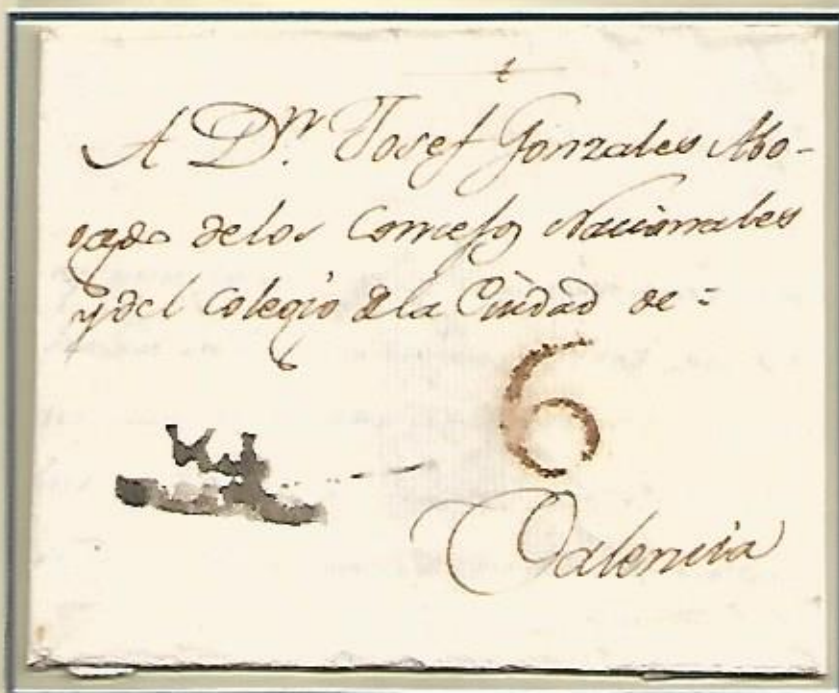 A Dⁿ. Josef Gonzales Abo-
gado delos Consejos Nacionales
y del Colegio de la Ciudad de =
6
Valencia